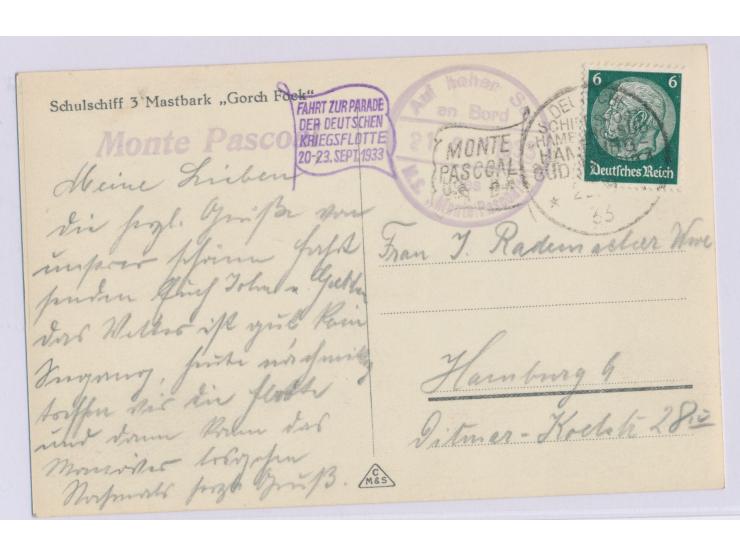 Schulschiff 3 Mastbark „Gorch Fock"
Monte Pascoal
FAHRT ZUR PARADE
DER DEUTSCHEN
KRIEGSFLOTTE
20-23. SEPT. 1933
Auf hoher S
an Bord
21
des
M.S. „Monte Pascoal
MONTE
PASCOAL
SCHI
HAM
SÜD
33
6 6
Deutsches Reich
Meine Lieben
die herzl. Grüße von
unserer schönen Fahrt
senden Euch John u.
das Wetter ist gut kein
Seegang, heute nachmittag
treffen wir die Flotte
und dann kann das
Manöver losgehen
Nochmals herzl. Gruß.
Frau J. Rademacher Wwe
Hamburg 9
Ditmar-Koelstr 28
C
M&S